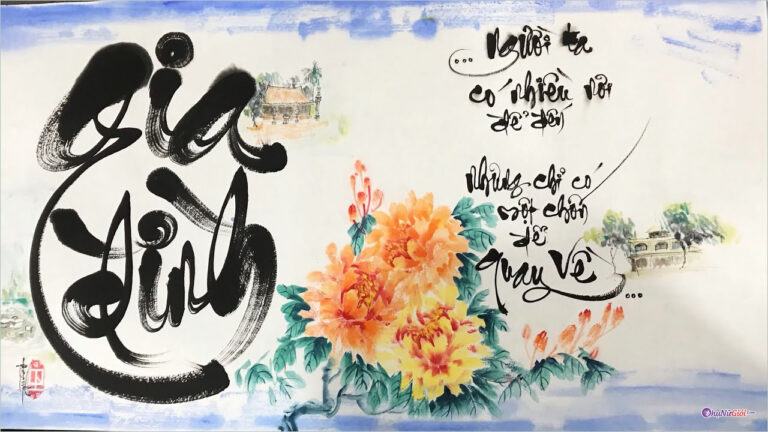 Gia
đình
... người ta
có nhiều nơi
để đến
nhưng chỉ có
một chốn
để
quay về
...
PhuNuGioi.com